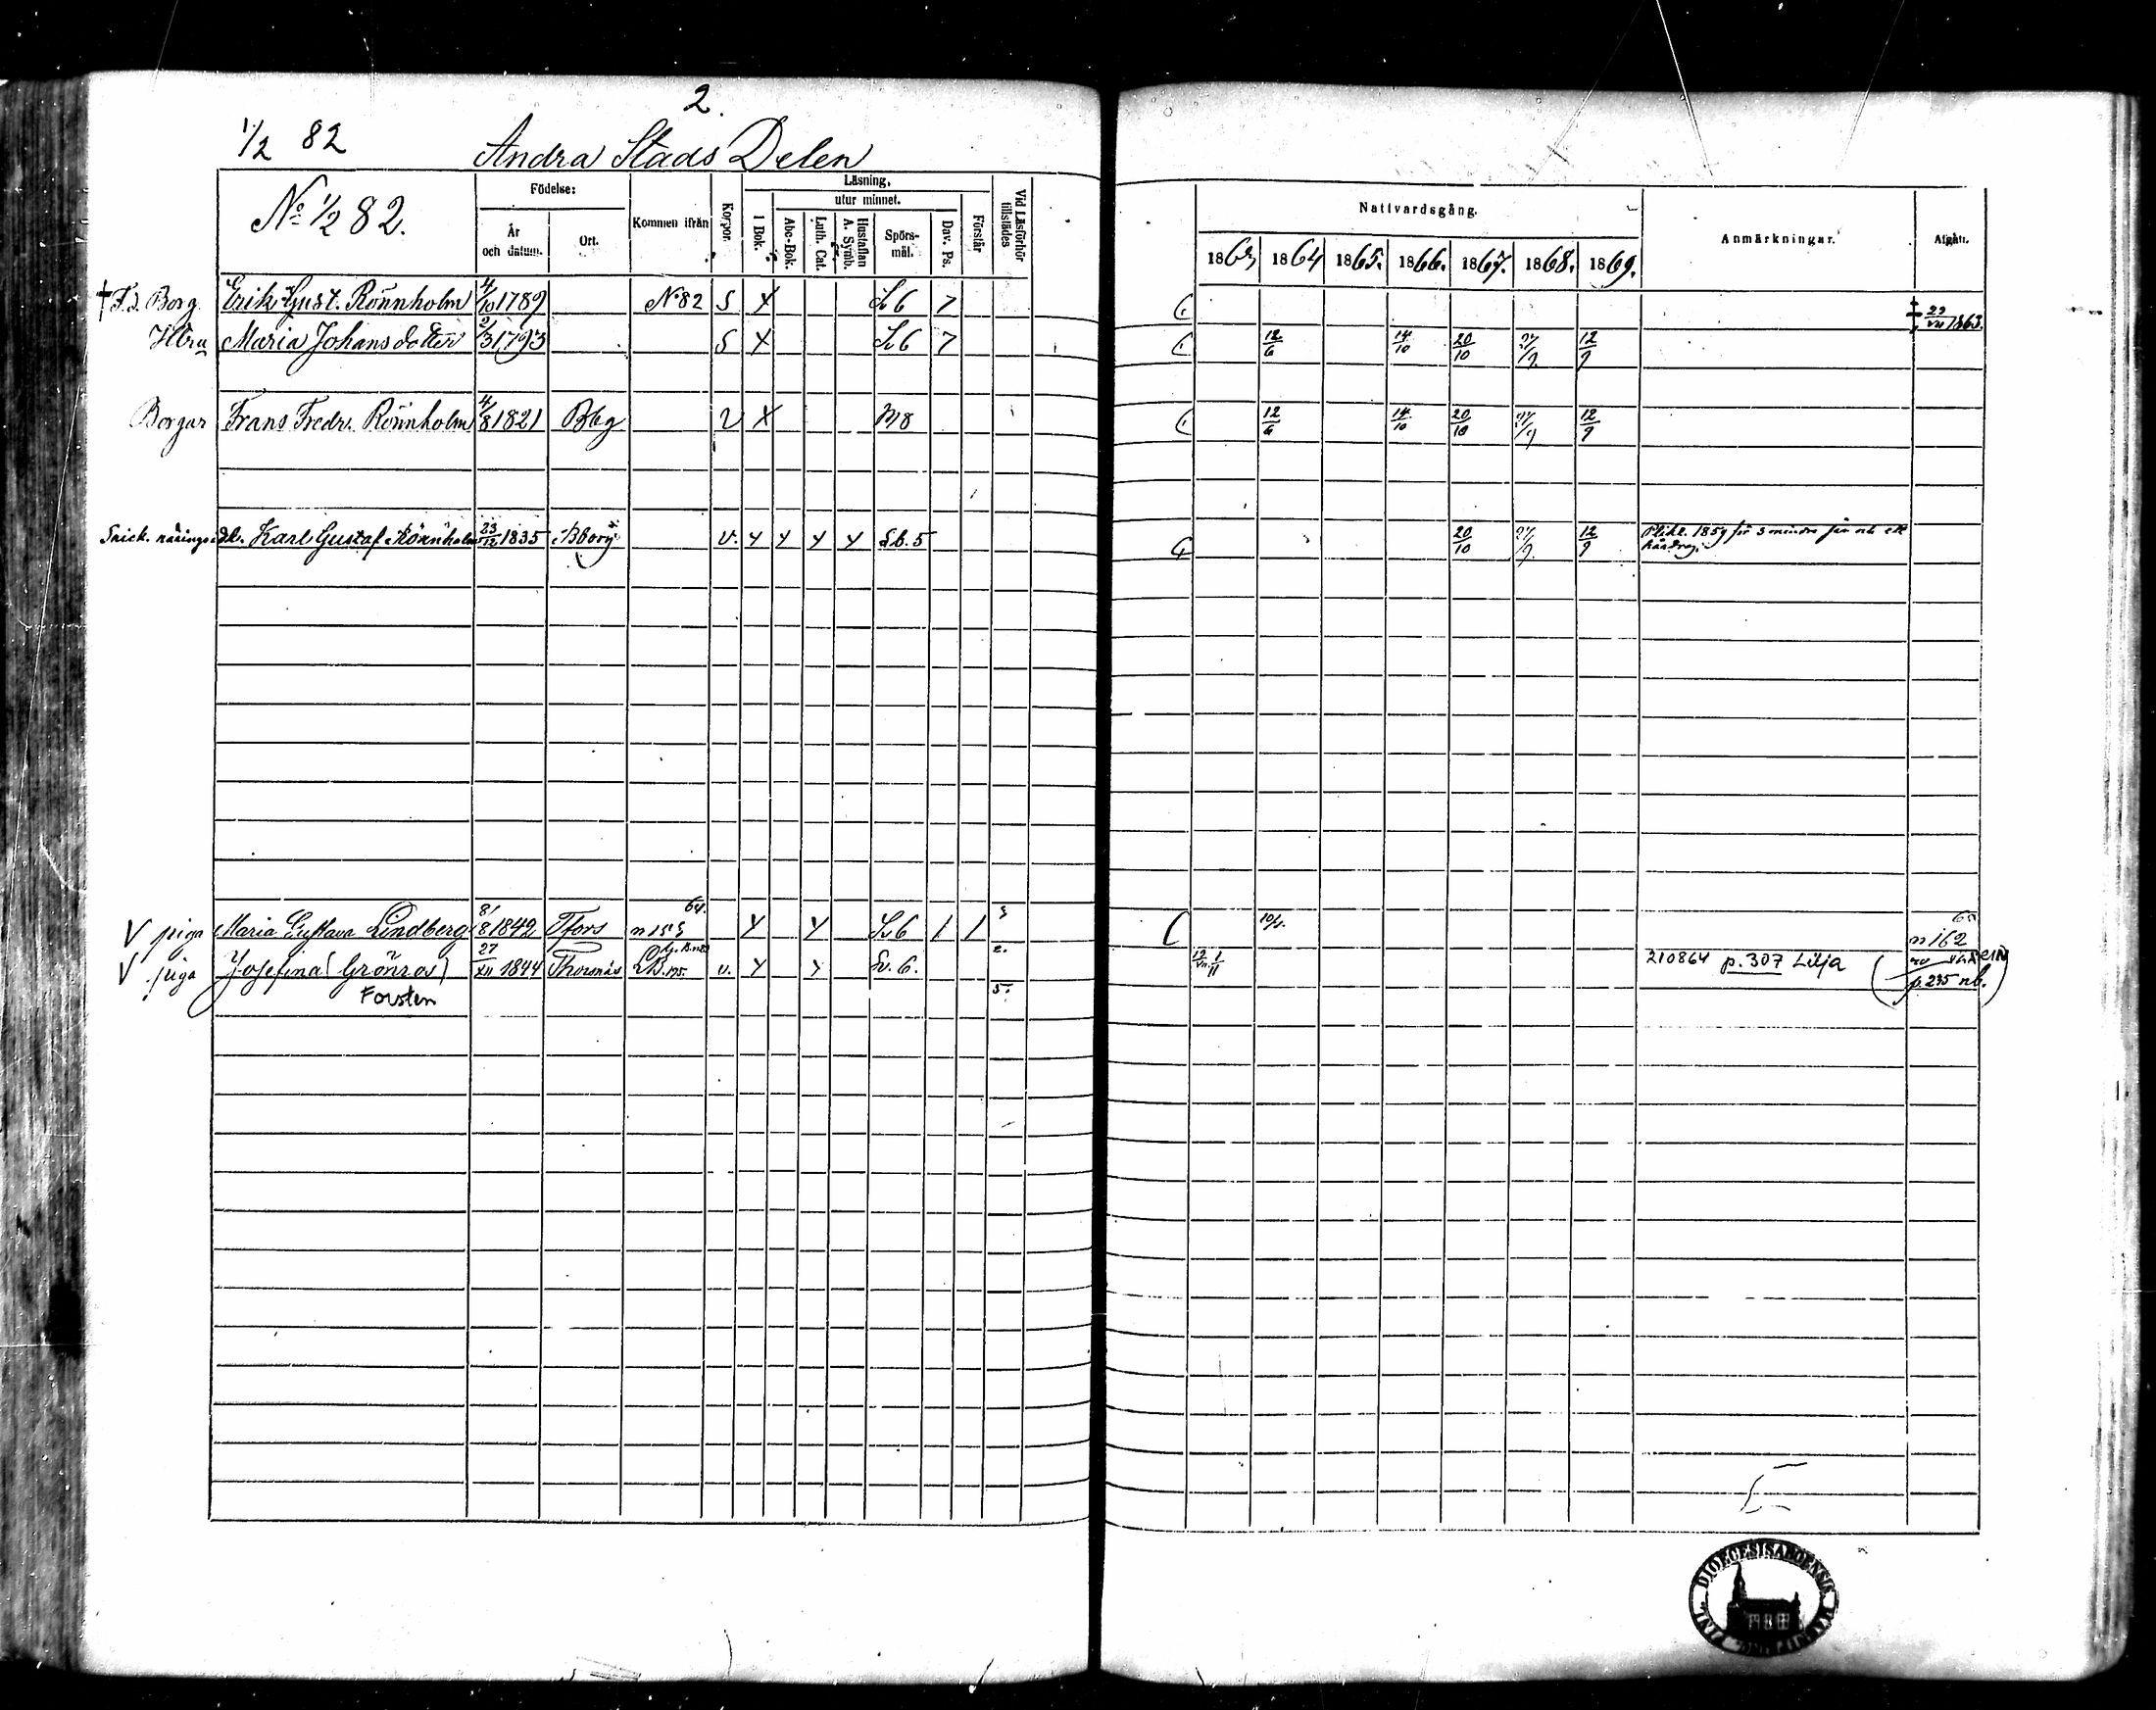 2.
1/2 82
Andra Stads Delen
No 1/2 82.
Födelse:
År och datum.
Ort.
Kommen ifrån
Koppor.
Läsning,
I Bok.
utur minnet.
Abc-Bok.
Luth. Cat.
Hustaflan A. Symb.
Spörsmål.
Dav. Ps.
Förstår
Vid Läsförhör tillstädes
Nattvardsgång.
1863 1864 1865. 1866. 1867. 1868. 1869.
Anmärkningar.
Afgått.
† F.d. Borg. Erik Gust. Rönnholm 4/10 1789 No 82 S X Sv 6 7 ‡ 22/VII 1863.
Hbru Maria Johansdotter 2/3 1793 S X Sv 6 7 12/6 14/10 20/10 12/9
Borgar Frans Fredr. Rönnholm 4/8 1821 Bbg V X M8 12/6 14/10 20/10 12/9
Snick. näringsidk. Karl Gustaf Rönnholm 23/12 1835 Bborg v. Y Y Y Y Sb. 5 20/10 12/9 Plikt. 1859 för
V piga Maria Gustava Lindberg 8/8 1842 Tfors n 155 64. Y Y Sv 6 / / n 162
V piga Josefina (Grönros) 27/XII 1844 Thorsnäs v. Y Y Sv. 6. 210864 p. 307 Lilja
Forsten 5. p. 235 nb.
DIOECESIS ABOENSIS